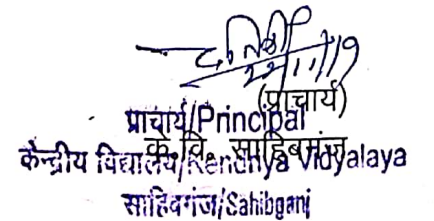 22/11/19
(प्राचार्य)
प्राचार्य/Principal
के. वि. साहिबगंज
केन्द्रीय विद्यालय/Kendriya Vidyalaya
साहिबगंज/Sahibganj